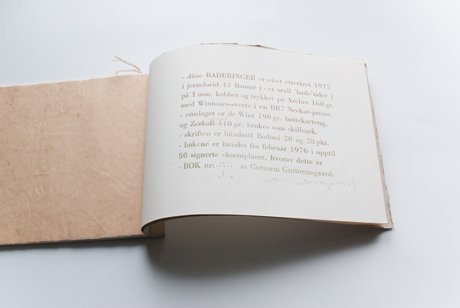 - disse RADERINGER er etset etteråret 1975
i jernclorid 43 Baumé ( - et småll 'bade'sider )
på 1 mm. kobber og trykket på Arches 160 gr.
med Wintones-sverte i en BB7 Neckar-presse.
- omslaget er de Wint 190 gr. bøttekartong,
og Zerkall 110 gr. brukes som skilleark.
- skriften er håndsatt Bodoni 20 og 28 pkt.
- bøkene er bundet fra februar 1976 i opptil
50 signerte eksemplarer, hvorav dette er
- BOK nr: av Guttorm Guttormsgaard.